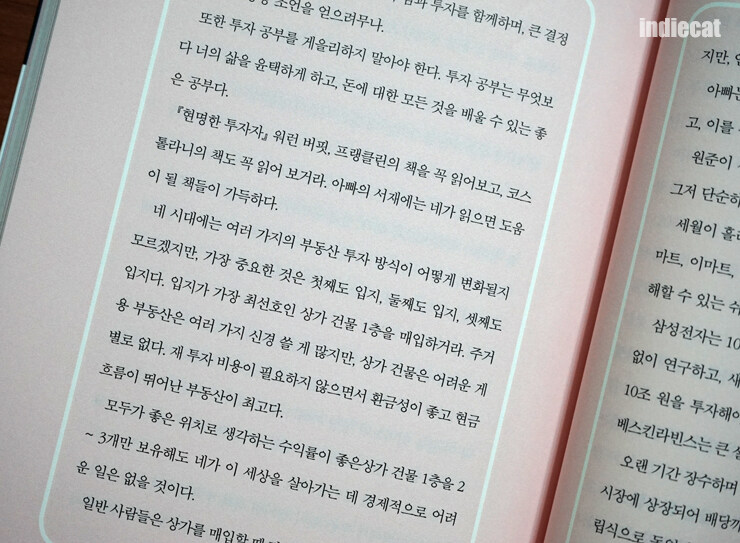 조언을 얻으려무나.
투자를 함께하며, 큰 결정
또한 투자 공부를 게을리하지 말아야 한다. 투자 공부는 무엇보
다 너의 삶을 윤택하게 하고, 돈에 대한 모든 것을 배울 수 있는 좋
은 공부다.
『현명한 투자자』 워런 버핏, 프랭클린의 책을 꼭 읽어보고, 코스
톨라니의 책도 꼭 읽어 보거라. 아빠의 서재에는 네가 읽으면 도움
이 될 책들이 가득하다.
네 시대에는 여러 가지의 부동산 투자 방식이 어떻게 변화될지
모르겠지만, 가장 중요한 것은 첫째도 입지, 둘째도 입지, 셋째도
입지다. 입지가 가장 최선호인 상가 건물 1층을 매입하거라. 주거
용 부동산은 여러 가지 신경 쓸 게 많지만, 상가 건물은 어려운 게
별로 없다. 재 투자 비용이 필요하지 않으면서 환금성이 좋고 현금
흐름이 뛰어난 부동산이 최고다.
모두가 좋은 위치로 생각하는 수익률이 좋은상가 건물 1층을 2
~ 3개만 보유해도 네가 이 세상을 살아가는 데 경제적으로 어려
운 일은 없을 것이다.
일반 사람들은 상가를 매입할 때
indiecat
지만,
아빠는
고, 이를
원준이
그저 단순히
세월이 흘러
마트, 이마트,
해할 수 있는
삼성전자는 10
없이 연구하고, 새
10조 원을 투자해
베스킨라빈스는 큰
오랜 기간 장수하며
시장에 상장되어 배당
립식으로